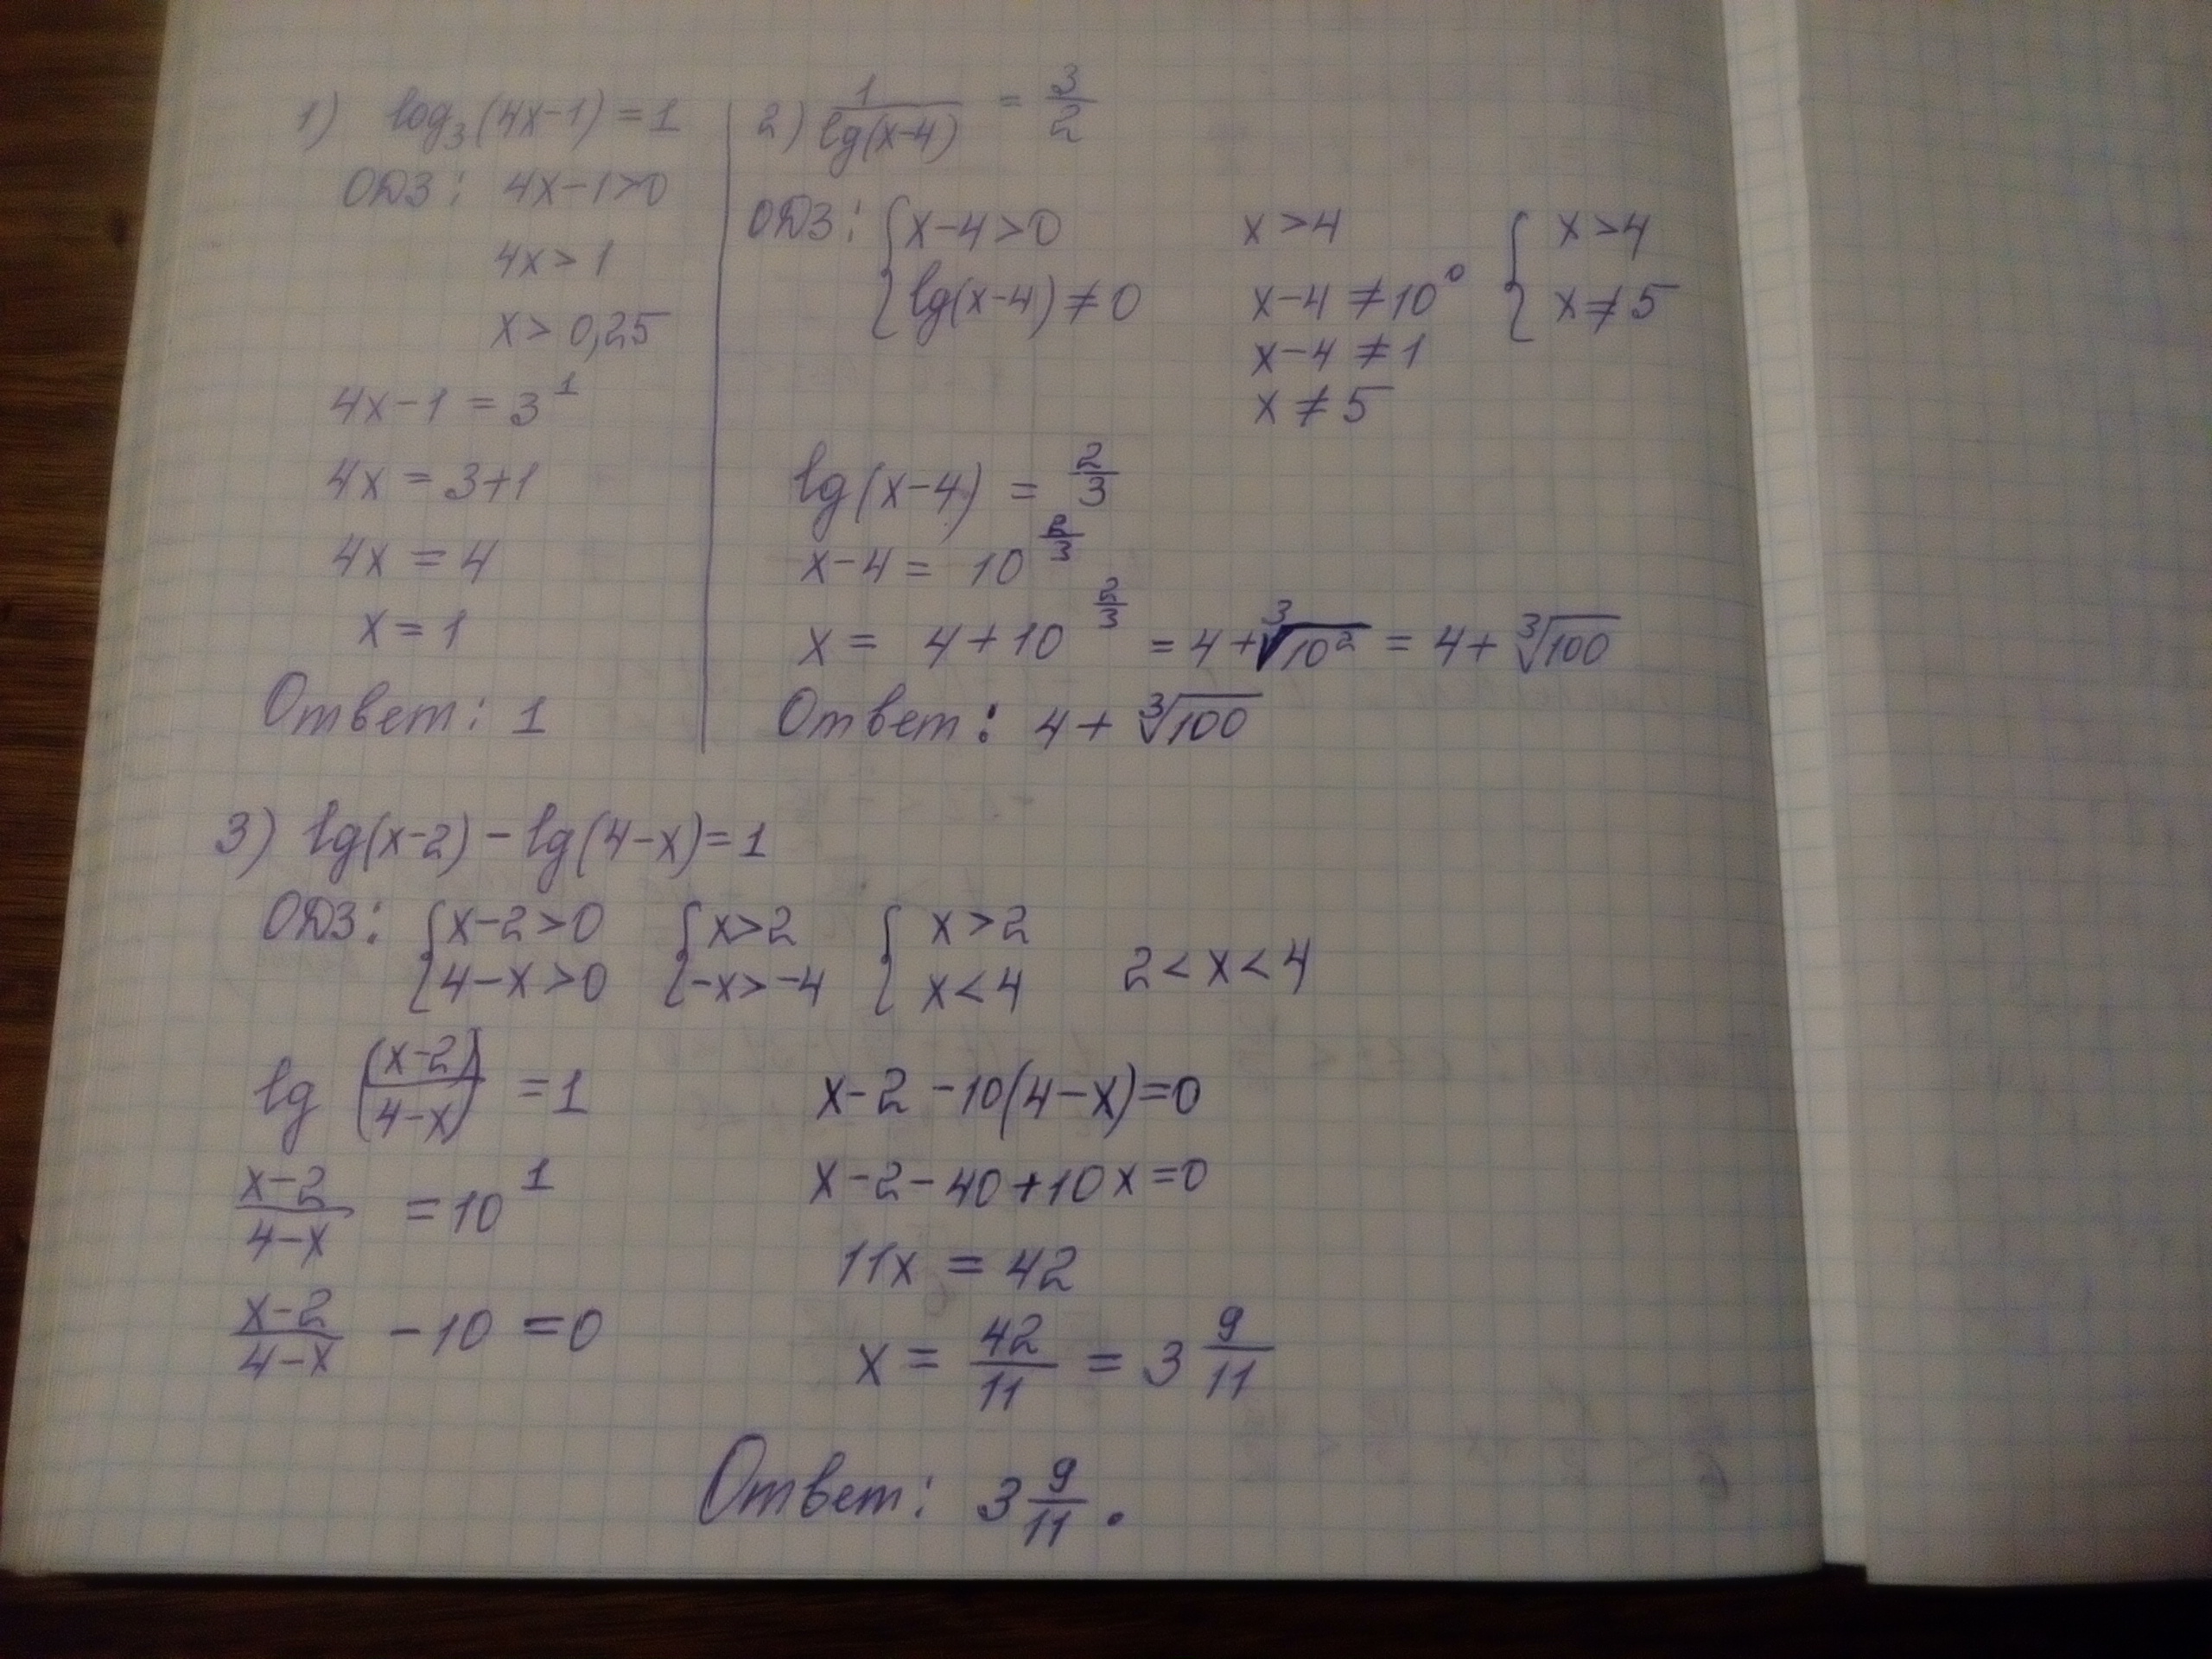 1) log₃(4x-1)=1
ОДЗ: 4x-1>0
4x>1
x>0,25
4x-1=3¹
4x=3+1
4x=4
x=1
Ответ: 1
2) 1/lg(x-4) = 3/2
ОДЗ: {x-4>0 x>4 {x>4
{lg(x-4)≠0 x-4≠10⁰ {x≠5
x-4≠1
x≠5
lg(x-4) = 2/3
x-4 = 10^(2/3)
x = 4+10^(2/3) = 4+∛10² = 4+∛100
Ответ: 4+∛100
3) lg(x-2)-lg(4-x)=1
ОДЗ: {x-2>0 {x>2 {x>2 2<x<4
{4-x>0 {-x>-4 {x<4
lg((x-2)/(4-x)) =1
(x-2)/(4-x) =10¹
(x-2)/(4-x) -10=0
x-2-10(4-x)=0
x-2-40+10x=0
11x=42
x = 42/11 = 3 9/11
Ответ: 3 9/11.